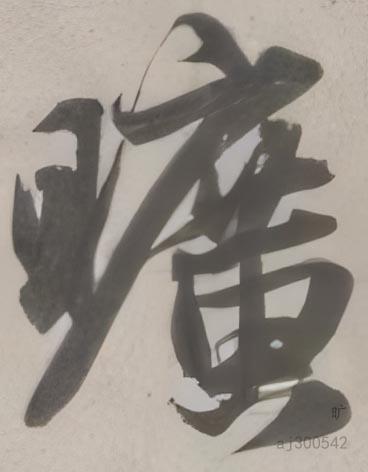 曠
旷
aj300542